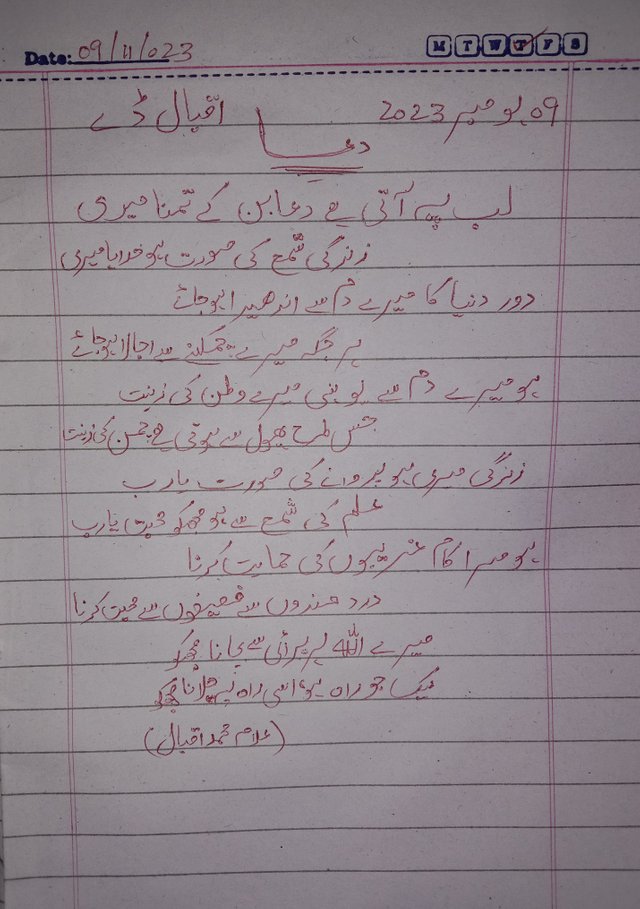 Date: 09/11/023 M T W T F S
09 نومبر 2023 اقبال ڈے
دعا
لب پہ آتی ہے دعا بن کے تمنا میری
زندگی شمع کی صورت ہو خدایا میری
دور دنیا کا میرے دم سے اندھیرا ہو جائے
ہر جگہ میرے چمکنے سے اجالا ہو جائے
ہو میرے دم سے یونہی میرے وطن کی زینت
جس طرح پھول سے ہوتی ہے چمن کی زینت
زندگی میری ہو پروانے کی صورت یارب
علم کی شمع سے ہو مجھ کو محبت یارب
ہو میرا کام غریبوں کی حمایت کرنا
درد مندوں سے ضعیفوں سے محبت کرنا
میرے اللہ ہر برائی سے بچانا مجھکو
نیک جو راہ ہو، اسی راہ پہ چلانا مجھکو
(علامہ محمد اقبال)